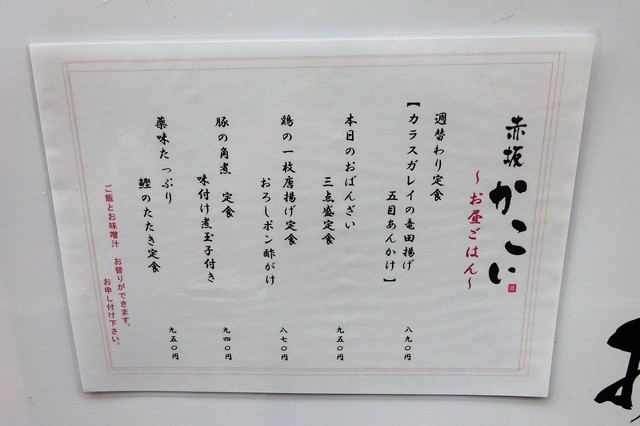 赤坂 かこい
～お昼ごはん～
週替わり定食
【カラスガレイの竜田揚げ
五目あんかけ】
八九〇円
本日のおばんざい
三点盛定食
九五〇円
鶏の一枚唐揚げ定食
おろしポン酢がけ
八七〇円
豚の角煮 定食
味付け煮玉子付き
九四〇円
薬味たっぷり
鰹のたたき定食
九五〇円
ご飯とお味噌汁 お替りができます。
お申し付け下さい。